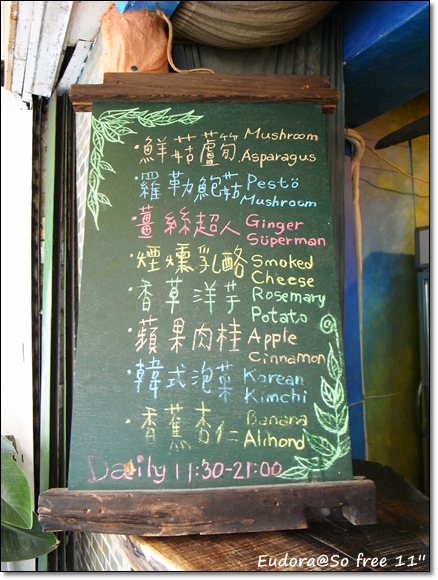 ·鮮菇蘆筍 Mushroom
Asparagus
·羅勒鮑菇 Pesto
Mushroom
·薑絲超人 Ginger
Süperman
·煙燻乳酪 Smoked
Cheese
·香草洋芋 Rosemary
Potato
·蘋果肉桂 Apple
Cinnamon
·韓式泡菜 Korean
Kimchi
·香蕉杏仁 Banana
Almond
Daily 11:30-21:00
Eudora@So free 11"